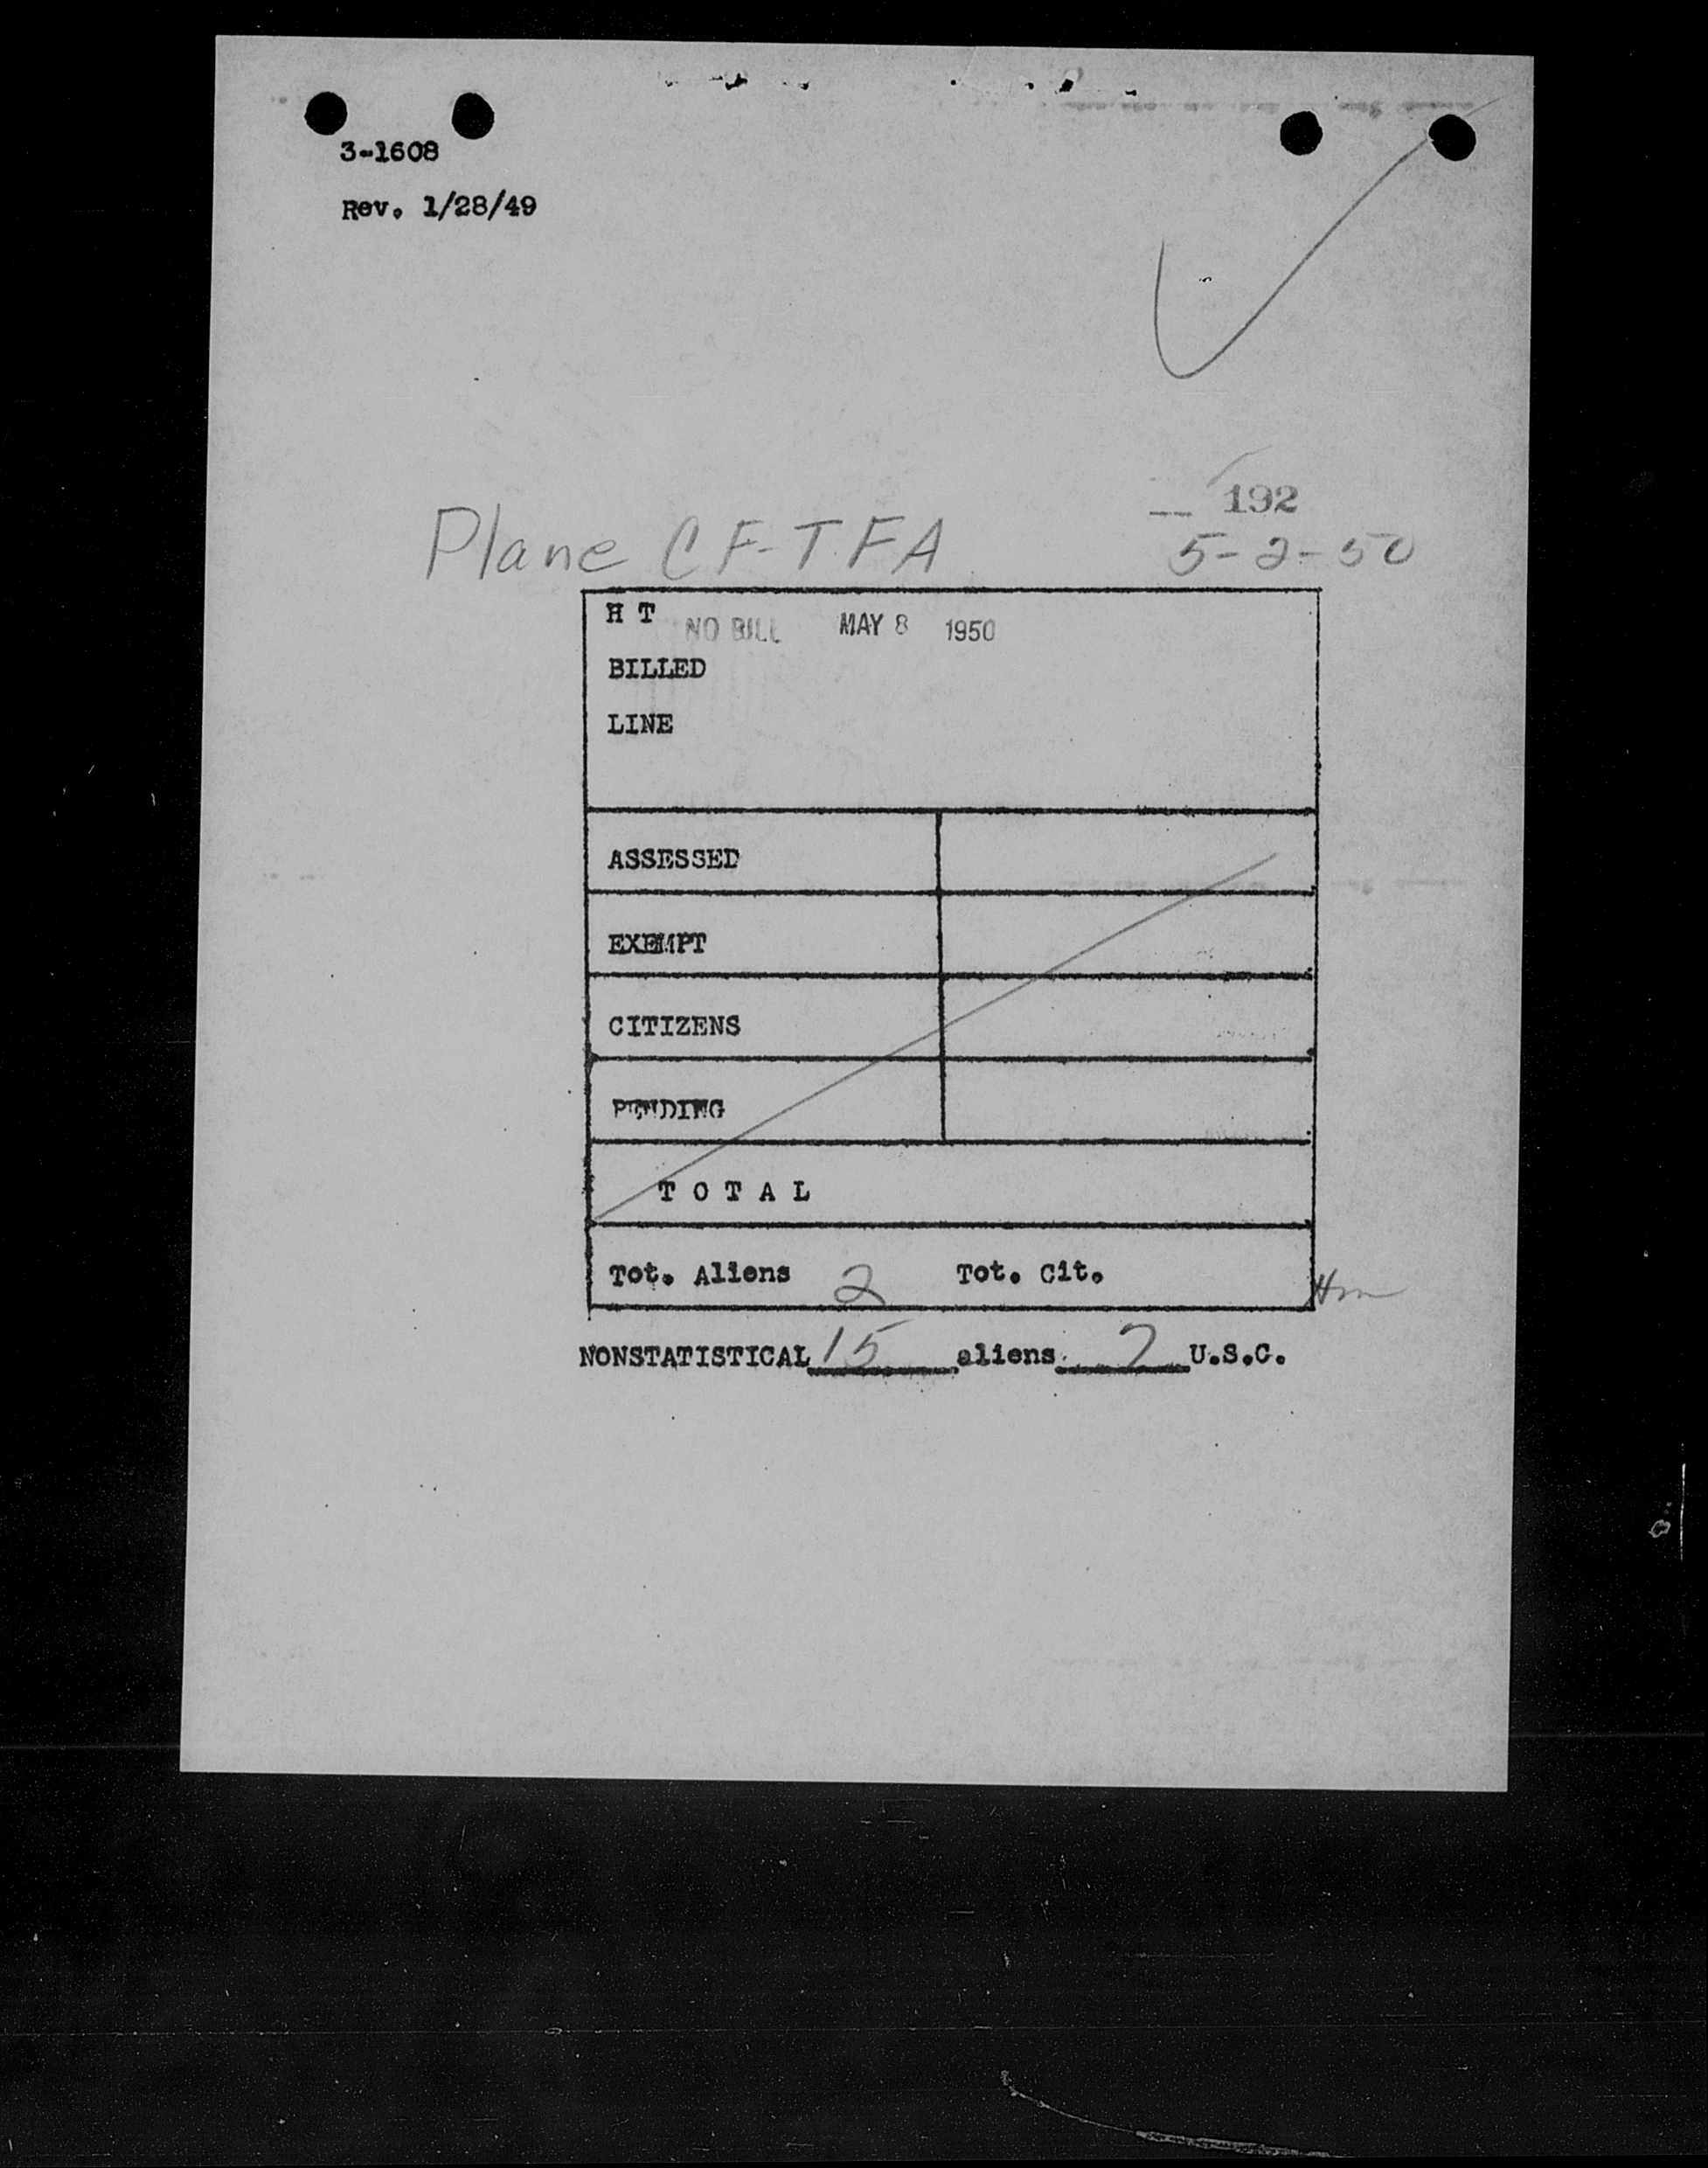 3-1608
Rev. 1/28/49
192
Plane CF-TFA 5-2-50
H T NO BILL MAY 8 1950
BILLED
LINE
ASSESSED
EXEMPT
CITIZENS
PENDING
T O T A L
Tot. Aliens 2 Tot. Cit.
NONSTATISTICAL 15 aliens 7 U.S.C.